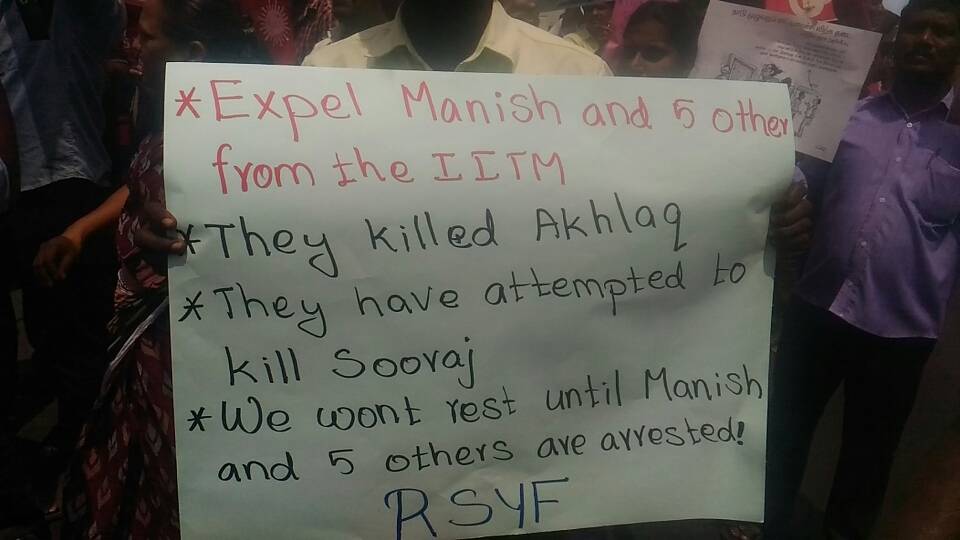 *Expel Manish and 5 other
from the IITM
*They killed Akhlaq
*They have attempted to
kill Sooraj
*We wont rest until Manish
and 5 others are arrested!
RSYF